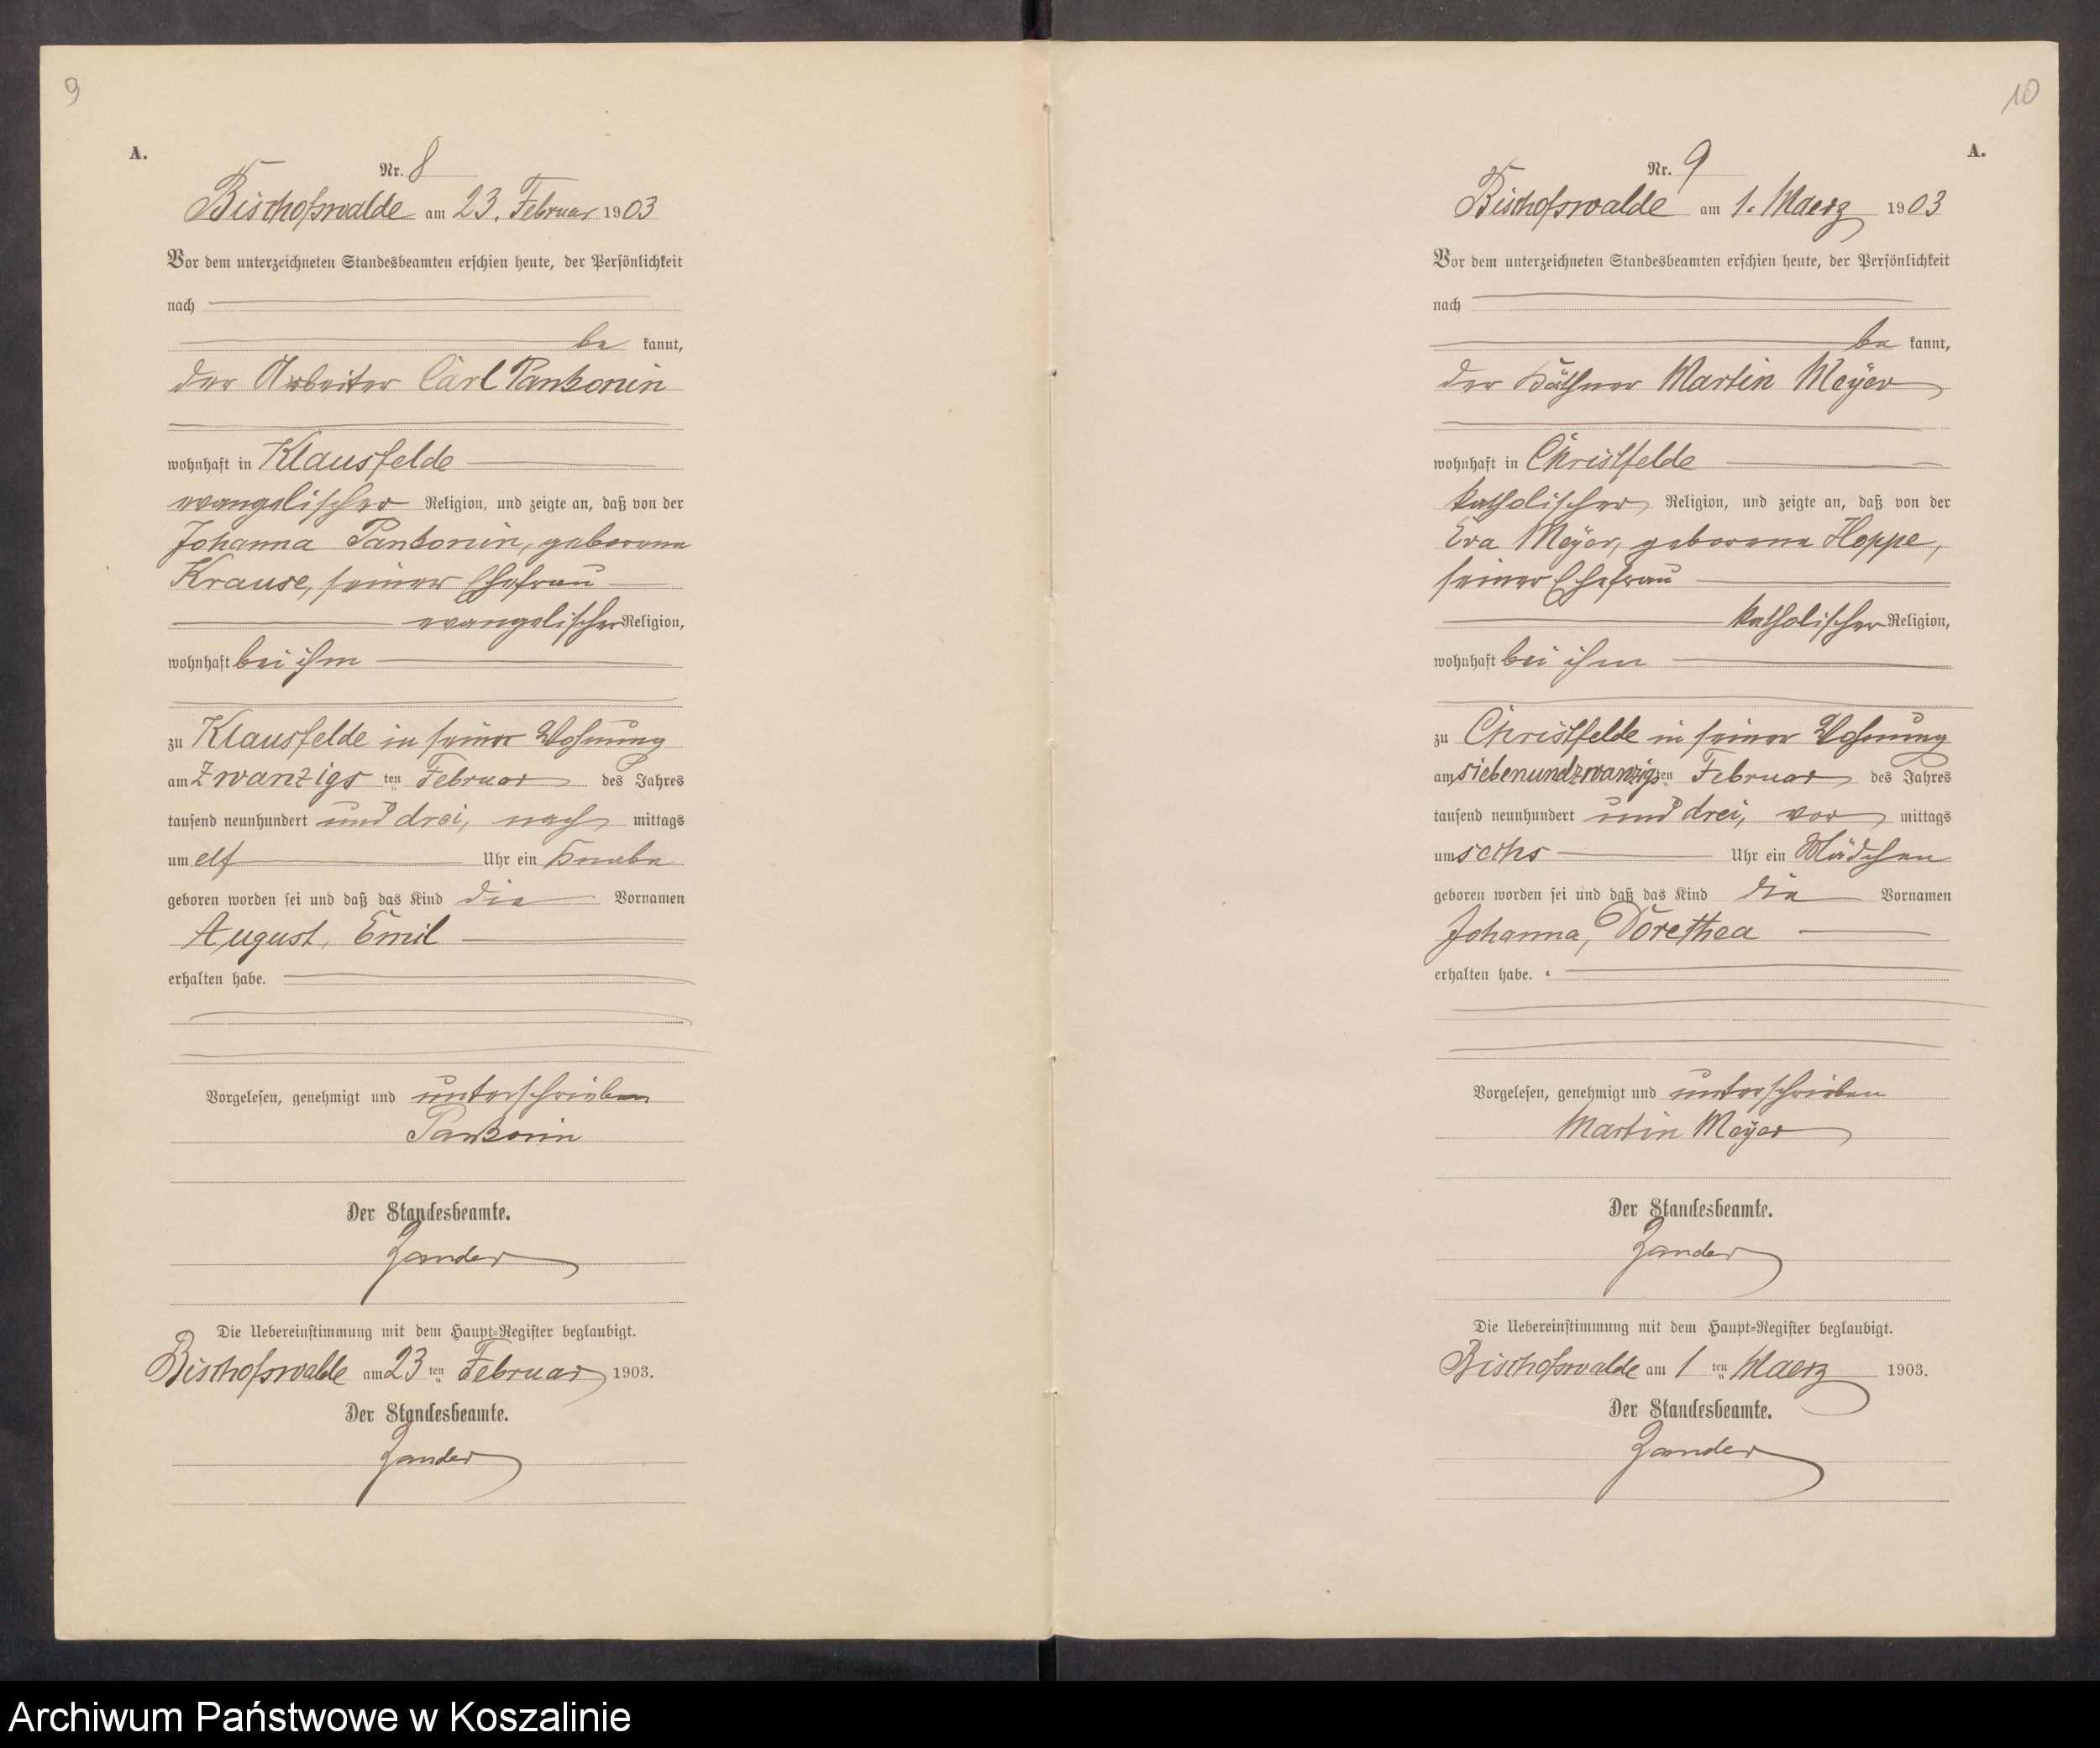 9
A.
Nr. 8
Bischofswalde am 23. Februar 1903
Vor dem unterzeichneten Standesbeamten erschien heute, der Persönlichkeit
nach
be kannt,
der Arbeiter Carl Pankonin
wohnhaft in Klausfelde
evangelischer Religion, und zeigte an, daß von der
Johanna Pankonin, geborene
Krause, seiner Ehefrau
evangelischer Religion,
wohnhaft bei ihm
zu Klausfelde in seiner Wohnung
am zwanzigs ten Februar des Jahres
tausend neunhundert und drei, nach mittags
um elf Uhr ein Knabe
geboren worden sei und daß das Kind die Vornamen
August, Emil
erhalten habe.
Vorgelesen, genehmigt und unterschrieben
Pankonin
Der Standesbeamte.
Zander
Die Uebereinstimmung mit dem Haupt-Register beglaubigt.
Bischofswalde am 23 ten Februar 1903.
Der Standesbeamte.
Zander
10
A.
Nr. 9
Bischofswalde am 1. Maerz 1903
Vor dem unterzeichneten Standesbeamten erschien heute, der Persönlichkeit
nach
be kannt,
der Käthner Martin Meÿer
wohnhaft in Christfelde
katholischer Religion, und zeigte an, daß von der
Eva Meÿer, geborene Hoppe,
seiner Ehefrau
katholischer Religion,
wohnhaft bei ihm
zu Christfelde in seiner Wohnung
am siebenundzwanzigs ten Februar des Jahres
tausend neunhundert und drei, vor mittags
um sechs Uhr ein Mädchen
geboren worden sei und daß das Kind die Vornamen
Johanna, Dorethea
erhalten habe.
Vorgelesen, genehmigt und unterschrieben
Martin Meÿer
Der Standesbeamte.
Zander
Die Uebereinstimmung mit dem Haupt-Register beglaubigt.
Bischofswalde am 1 ten Maerz 1903.
Der Standesbeamte.
Zander
Archiwum Państwowe w Koszalinie